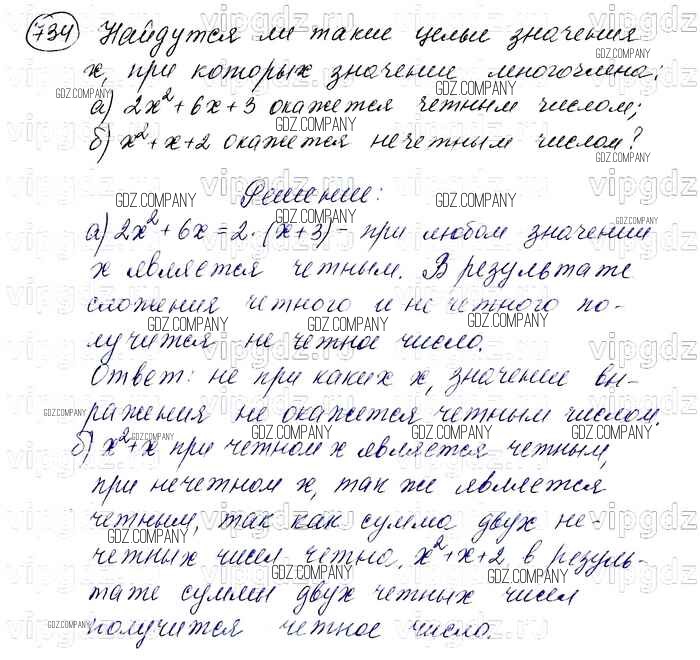 734 Найдутся ли такие целые значения
х, при которых значение многочлена:
а) 2х²+6х+3 окажется четным числом;
б) х²+х+2 окажется нечетным числом?
Решение:
а) 2х²+6х=2·(х+3) - при любом значении
х является четным. В результате
сложения четного и не четного по-
лучится не четное число.
Ответ: не при каких х, значение вы-
ражения не окажется четным числом.
б) х²+х при четном х является четным,
при нечетном х, так же является
четным, так как сумма двух не-
четных чисел четно, х²+х+2 в резуль-
тате суммы двух четных чисел
получится четное число.